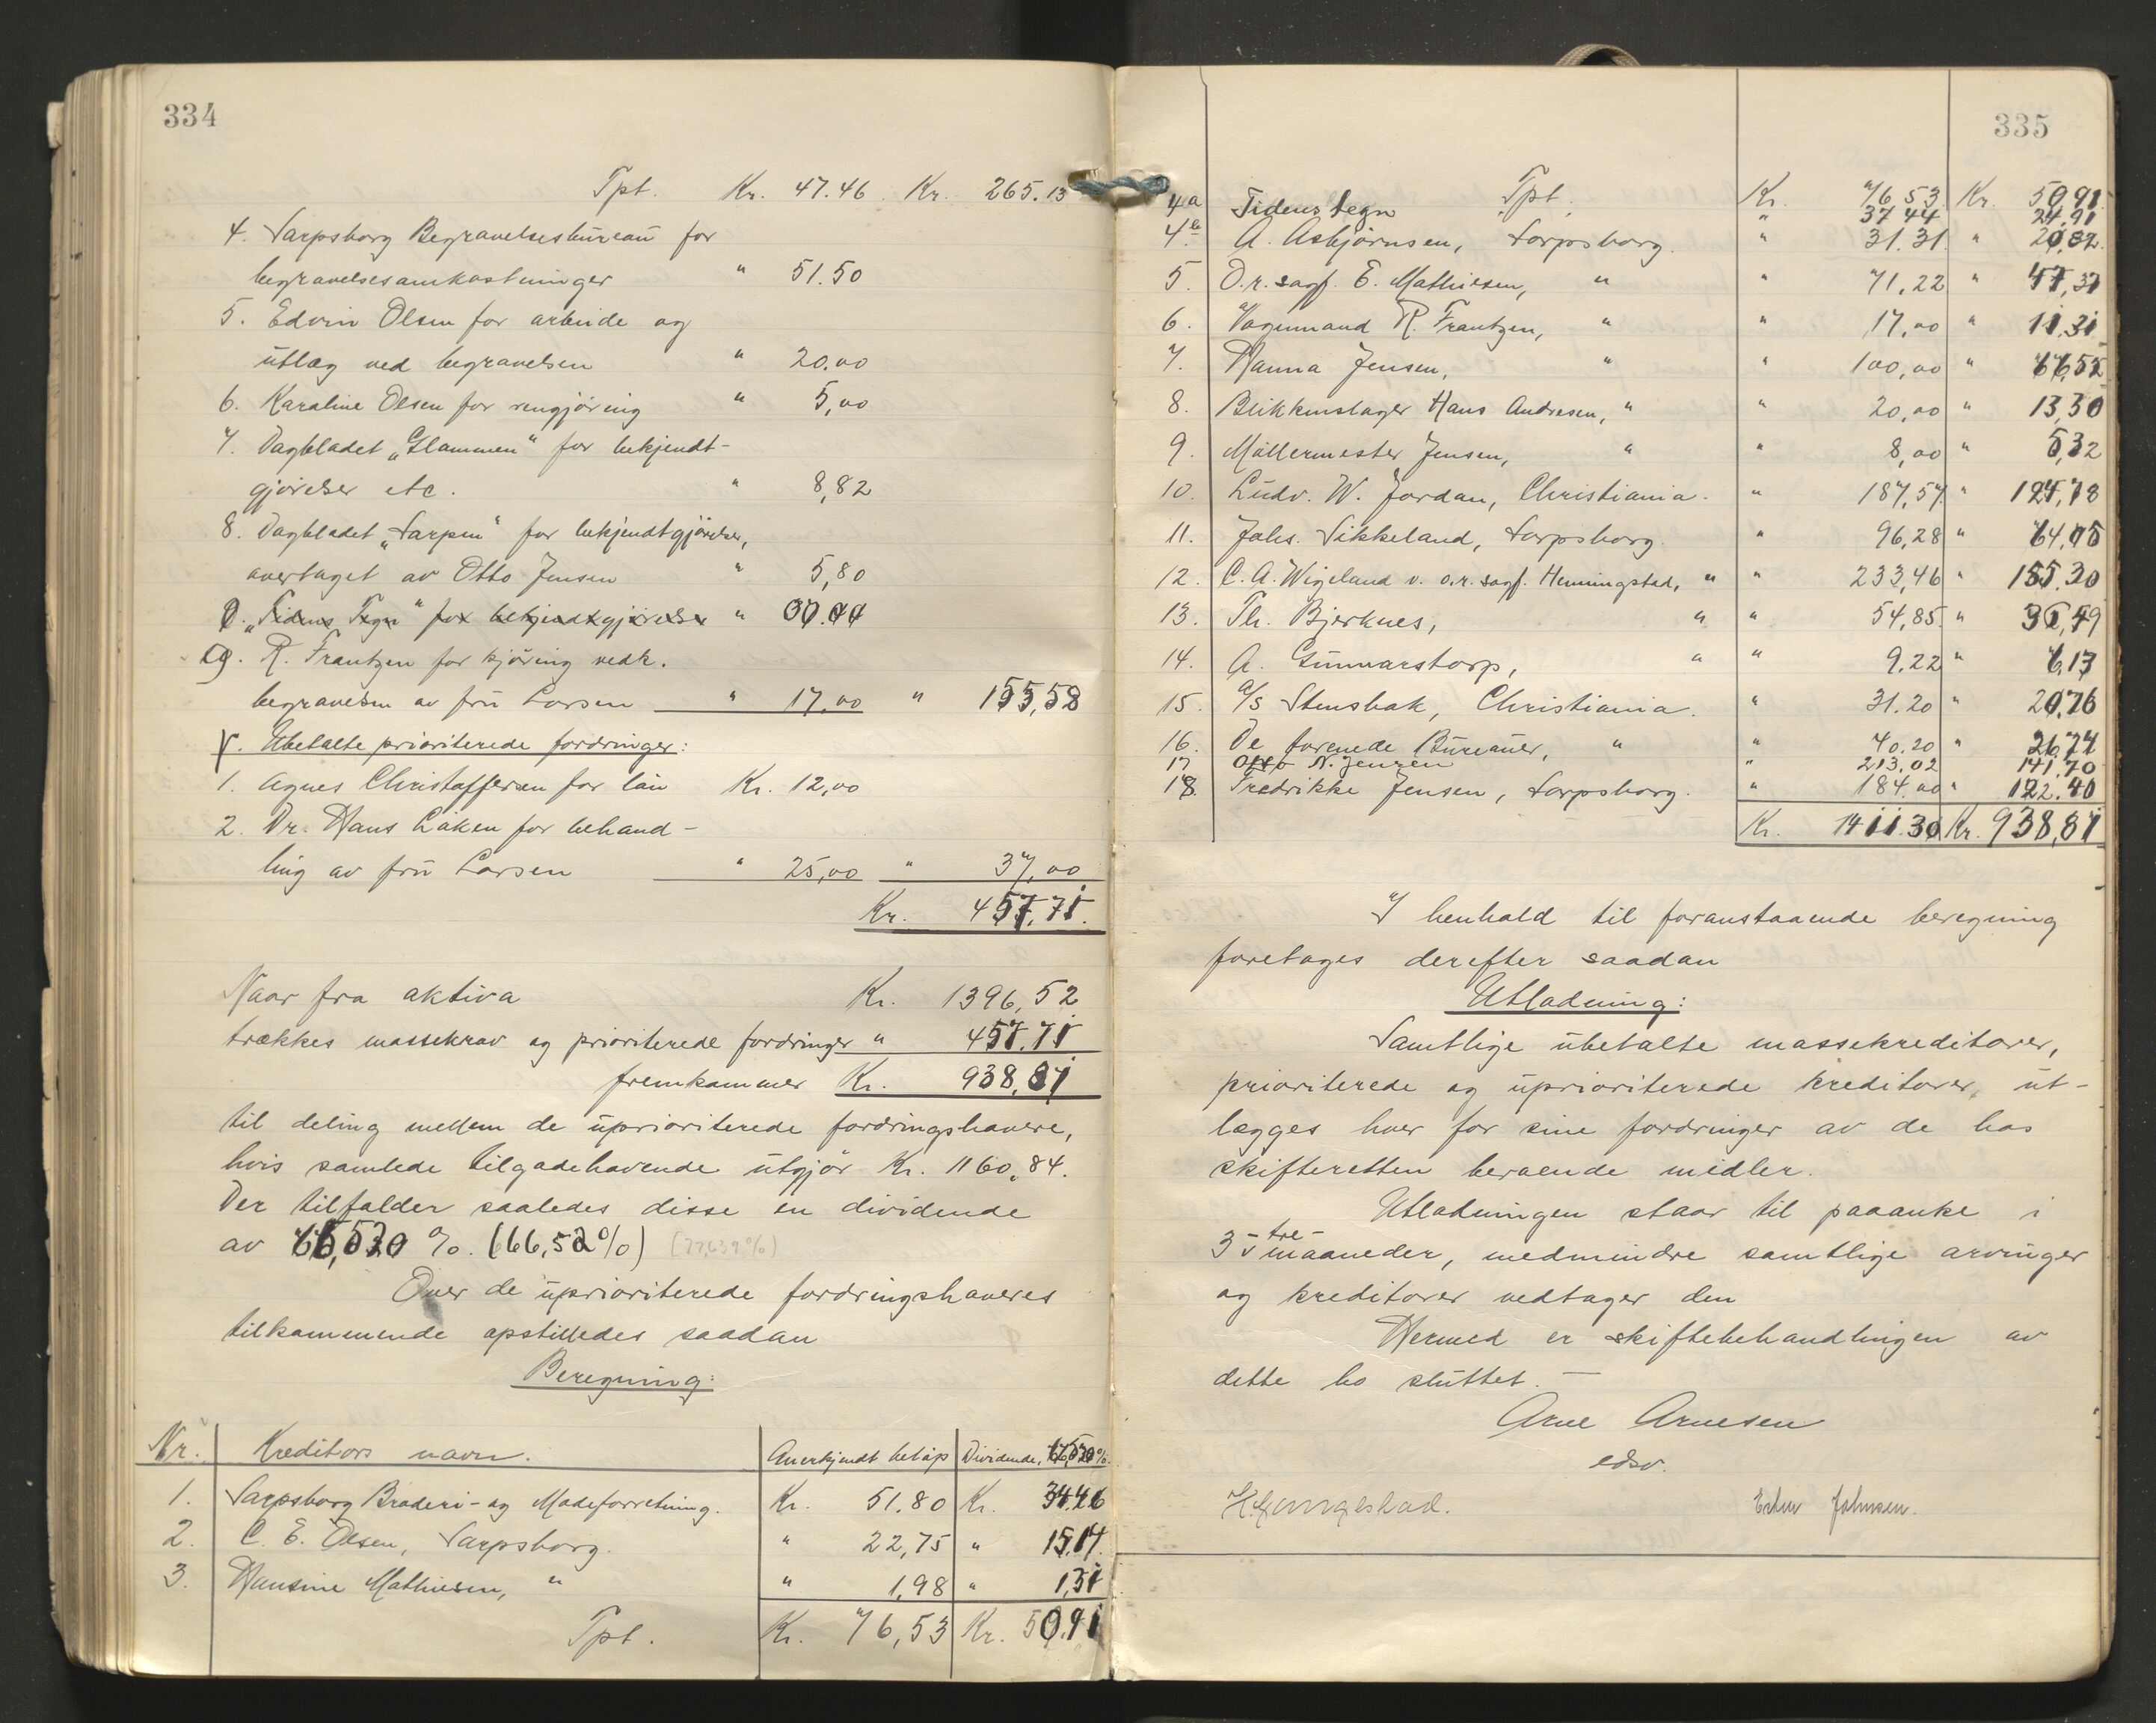 334
Tpt. Kr. 47.46 Kr. 265.13
4. Sarpsborg Begravelsesbureau for
begravelsesomkostninger " 51.50
5. Edvin Olsen for arbeide og
utlæg ved begravelsen " 20.00
6. Karoline Olsen for rengjøring " 5,00
7. Dagbladet „Glommen“ for bekjendt-
gjørelser etc. " 8,82
8. Dagbladet „Sarpen“ for bekjendtgjørelser,
overtaget av Otto Jensen " 5,80
„Tidens Tegn“ for bekjendtgjørelse "
9. R. Frantzen for kjøring vedk.
begravelsen av fru Larsen " 17,00 " 155,58
V. Ubetalte prioriterede fordringer:
1. Agnes Christoffersen for lån Kr. 12,00
2. Dr. Hans Låken for behand-
ling av fru Larsen " 25,00 " 37,00
Kr. 457,71.
Naar fra aktiva Kr. 1396,52
trækkes massekrav og prioriterede fordringer " 457.71
fremkommer Kr. 938,81
til deling mellem de uprioriterede fordringshavere,
hvis samlede tilgodehavende utgjør Kr. 1160,84.
Der tilfalder saaledes disse en dividende
av 66,520 %. (66,52%)
Over de uprioriterede fordringshaveres
tilkommende opstilledes saadan
Beregning:
Nr. Kreditors navn. Anerkjendt beløp Dividende, 66,520%.
1. Sarpsborg Broderi- og Modeforretning. Kr. 51.80 Kr. 34.46
2. C. E. Olsen, Sarpsborg. " 22,75 " 15,14
3. Hansine Mathiesen, " " 1,98 " 1,31
Tpt. Kr. 76,53 Kr. 50,91
335
Tpt. Kr. 76,53 Kr. 50,91
4a Tidens tegn " 37.44 24,91
4b A. Asbjørnsen, Sarpsborg. " 31.31 " 20,82
5. O.r. sagf. E. Mathiesen, " " 71,22 " 47,37
6. Vognmand R. Frantzen, " " 17,00 " 11,31
7. Hanna Jensen, " " 100,00 " 66,52
8. Blikkenslager Hans Andresen, " " 20,00 " 13,30
9. Møllermester Jensen, " " 8,00 " 5,32
10. Ludv. W. Jordan, Christiania. " 187,57 " 124,78
11. Johs. Sikkeland, Sarpsborg. " 96,28 " 64,05
12. C. A. Wigeland v. o.r. sagf. Henningstad, " " 233,46 " 155,30
13. Th. Bjerknes, " " 54,85 " 36,49
14. A. Gunnarstorp, " " 9.22 " 6,13
15. A/S Stensbak, Christiania. " 31.20 " 20,76
16. De forenede Bureauer, " " 40.20 " 26,74
17 Otto N. Jensen " 213,02 141,70
18. Fredrikke Jensen, Sarpsborg. " 184.00 " 122.40
Kr. 1411.30 Kr. 938,81
I henhold til foranstaaende beregning
foretages derefter saadan
Utlodning:
Samtlige ubetalte massekreditorer,
prioriterede og uprioriterede kreditorer, ut-
lægges hver for sine fordringer av de hos
skifteretten beroende midler.
Utlodningen staar til paaanke i
3 - tre -
maaneder, medmindre samtlige arvinger
og kreditorer vedtager den
Hermed er skiftebehandlingen av
dette bo sluttet. —
Arne Arnesen
edsv.
Johnsen.